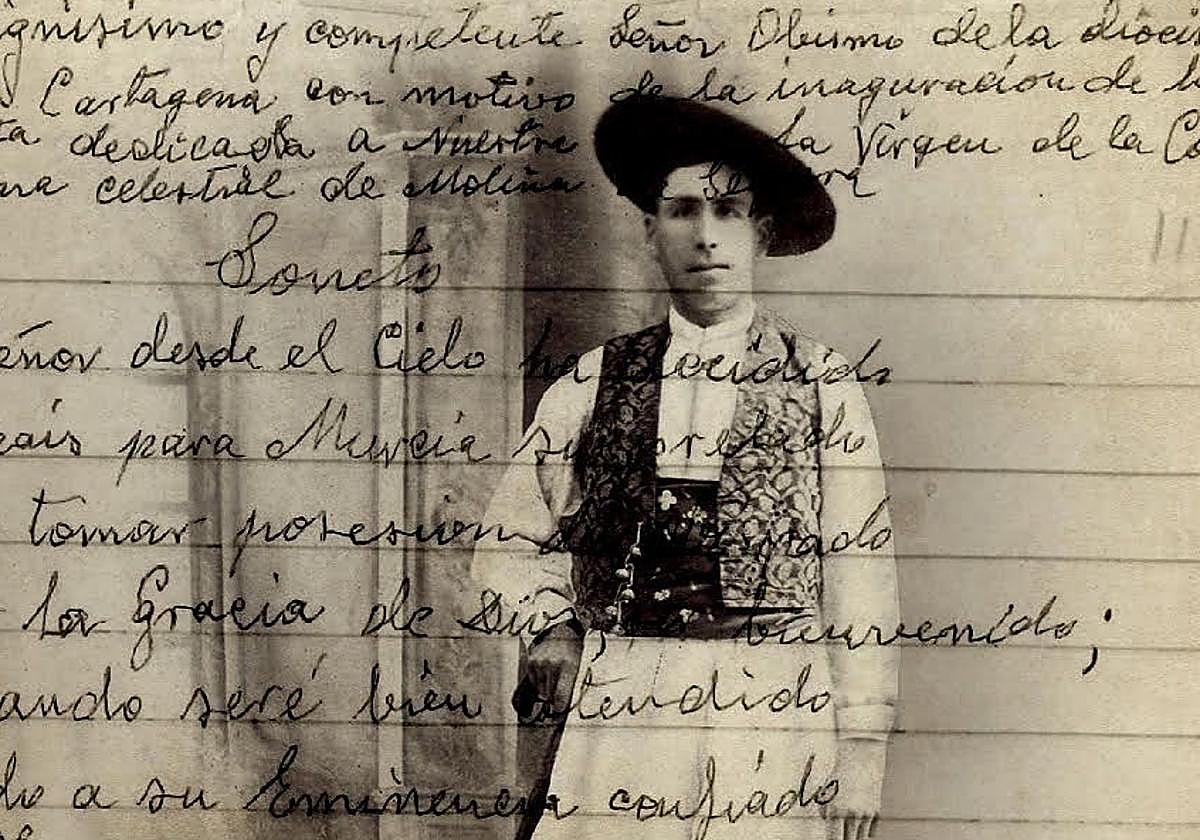 ignisimo y competente Señor Obismo de la dióci
Cartagena con motivo de la inaguración de l
ta dedicada a Nuestra la Virgen de la Co
na celestial de Molina de Segura
Soneto
eñor desde el Cielo ha decidido
eais para Murcia su prelado
tomar posesion
la Gracia de Dios, bienvenido;
ando seré bien atendido
do a su Eminencia confiado